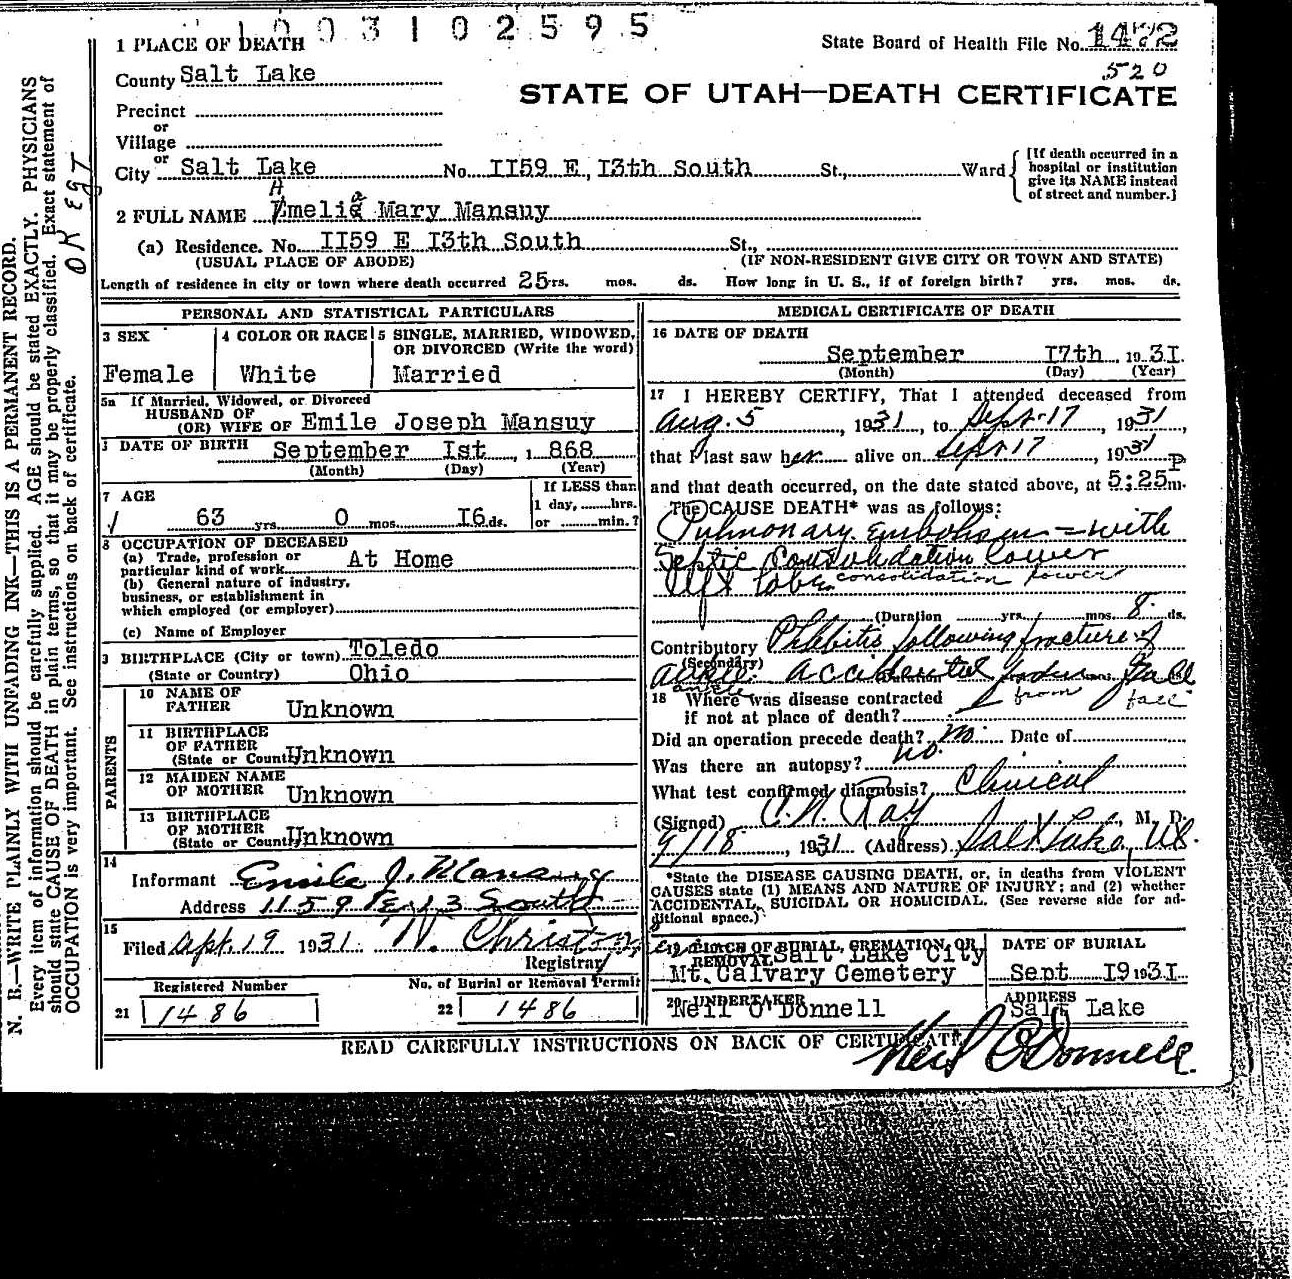 1003102595
1 PLACE OF DEATH
State Board of Health File No. 1472
520
County Salt Lake
STATE OF UTAH—DEATH CERTIFICATE
Precinct
or
Village
or
City Salt Lake No. II59 E, I3th South St., Ward
[If death occurred in a
hospital or institution
give its NAME instead
of street and number.]
A a
2 FULL NAME Emelie Mary Mansuy
(a) Residence. No. II59 E I3th South St.,
(USUAL PLACE OF ABODE) (IF NON-RESIDENT GIVE CITY OR TOWN AND STATE)
Length of residence in city or town where death occurred 25 yrs. mos. ds. How long in U. S., if of foreign birth? yrs. mos. ds.
PERSONAL AND STATISTICAL PARTICULARS
3 SEX
Female
4 COLOR OR RACE
White
5 SINGLE, MARRIED, WIDOWED,
OR DIVORCED (Write the word)
Married
5a If Married, Widowed, or Divorced
HUSBAND OF
(OR) WIFE OF Emile Joseph Mansuy
DATE OF BIRTH September Ist, 1 868
(Month) (Day) (Year)
7 AGE
63 yrs. 0 mos. I6 ds.
If LESS than
1 day, hrs.
or min.?
8 OCCUPATION OF DECEASED
(a) Trade, profession or
particular kind of work At Home
(b) General nature of industry,
business, or establishment in
which employed (or employer)
(c) Name of Employer
BIRTHPLACE (City or town) Toledo
(State or Country) Ohio
PARENTS
10 NAME OF
FATHER Unknown
11 BIRTHPLACE
OF FATHER
(State or Country) Unknown
12 MAIDEN NAME
OF MOTHER Unknown
13 BIRTHPLACE
OF MOTHER
(State or Country) Unknown
14
Informant Emile J. Mansuy
Address 1159 E 13 South
15
Filed Sept. 19 1931
Registrar
Registered Number
21 1486
No. of Burial or Removal Permit
22 1486
MEDICAL CERTIFICATE OF DEATH
16 DATE OF DEATH
September I7th 1931.
(Month) (Day) (Year)
17 I HEREBY CERTIFY, That I attended deceased from
Aug. 5, 1931, to Sept. 17, 1931,
that I last saw her alive on Sept 17, 1931
and that death occurred, on the date stated above, at 5:25 P m.
The CAUSE DEATH* was as follows:
Pulmonary Embolism — with
Septic Consolidation lower
left lobe consolidation lower
(Duration yrs. mos. 8 ds.
Contributory Phlebitis following fracture of
(Secondary)
ankle. Accidental from fall
ankle from fall
18 Where was disease contracted
if not at place of death?
Did an operation precede death? no. Date of
Was there an autopsy? no.
What test confirmed diagnosis? Clinical
(Signed) C. N. Ray, M. D.
9/18, 1931 (Address) Salt Lake, Ut.
*State the DISEASE CAUSING DEATH, or, in deaths from VIOLENT
CAUSES state (1) MEANS AND NATURE OF INJURY; and (2) whether
ACCIDENTAL, SUICIDAL OR HOMICIDAL. (See reverse side for ad-
ditional space.)
19 PLACE OF BURIAL, CREMATION, OR
REMOVAL Salt Lake City
Mt. Calvary Cemetery
DATE OF BURIAL
Sept I9 1931
20 UNDERTAKER
Neil O'Donnell
ADDRESS
Salt Lake
READ CAREFULLY INSTRUCTIONS ON BACK OF CERTIFICATE
Neil O'Donnell.
N. B.—WRITE PLAINLY WITH UNFADING INK—THIS IS A PERMANENT RECORD.
Every item of information should be carefully supplied. AGE should be stated EXACTLY. PHYSICIANS
should state CAUSE OF DEATH in plain terms, so that it may be properly classified. Exact statement of
OCCUPATION is very important. See instructions on back of certificate.
OK